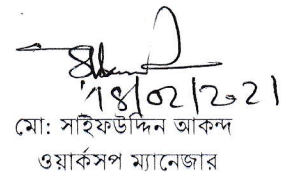 18/02/2021
মো: সাইফউদ্দিন আকন্দ
ওয়ার্কসপ ম্যানেজার